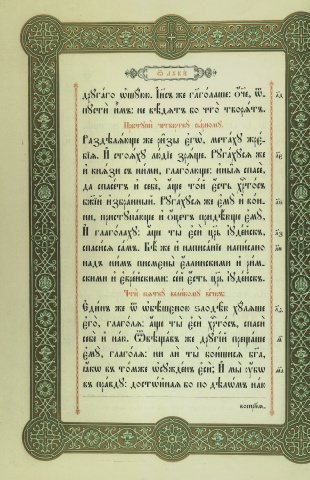 Ѿ ЛꙋКИ
дрꙋгаго ѡшꙋюю. І҆и҃съ же гл҃аголаше: ѻ҆́ч҃е, ѿ-
пꙋстѝ и҆̀мъ: не вѣ́дѧтъ бо что̀ творѧ́тъ.
Раздѣлѧ́юще же ри̑зы є҆гѡ̀, мета́хꙋ жре́-
бїѧ. И҆ стоѧ́хꙋ лю́дїе зрѧ́ще. Рꙋга́хꙋсѧ же
и҆ кнѧ̑зи съ ни́ми, глаго́люще: и҆ны̑ѧ сп҃се́,
да сп҃се́тъ и҆ себѐ, а҆́ще то́й є҆́сть хрⷭ҇то́съ
бж҃їй и҆збра́нный. Рꙋга́хꙋсѧ же є҆мꙋ̀ и҆ во́и-
ни, пристꙋпа́юще и҆ ѻ҆́цетъ придѣ́юще є҆мꙋ̀,
И҆ глаго́лахꙋ: а҆́ще ты̀ є҆сѝ цр҃ь і҆ꙋде́йскъ,
сп҃си́сѧ са́мъ. Бѣ́ же и҆ написа́нїе напи́сано
над̾ ни́мъ писмены̀ є҆́ллинскими и҆ ри́м-
скими и҆ є҆вре́йскими: се́й є҆́сть цр҃ь і҆ꙋде́йскъ.
Є҆ди́нъ же ѿ ѡ҆бѣ́шеною ѕлодѣ̑ю хꙋ́лѧше
є҆го̀, глаго́лѧ: а҆́ще ты̀ є҆сѝ хрⷭ҇то́съ, сп҃сѝ
себѐ и҆ на́ю. Ѿвѣща́въ же дрꙋгі́й преща́ше
є҆мꙋ̀, глаго́лѧ: ни ли́ ты̀ бои́шисѧ бг҃а,
ꙗ҆́кѡ въ то́мже ѡ҆сꙋжде́нъ є҆сѝ; И҆ мы̀ ᲂу҆́бѡ
въ пра́вдꙋ: достѡ́йнаѧ бо по дѣлѡ́мъ на́ю